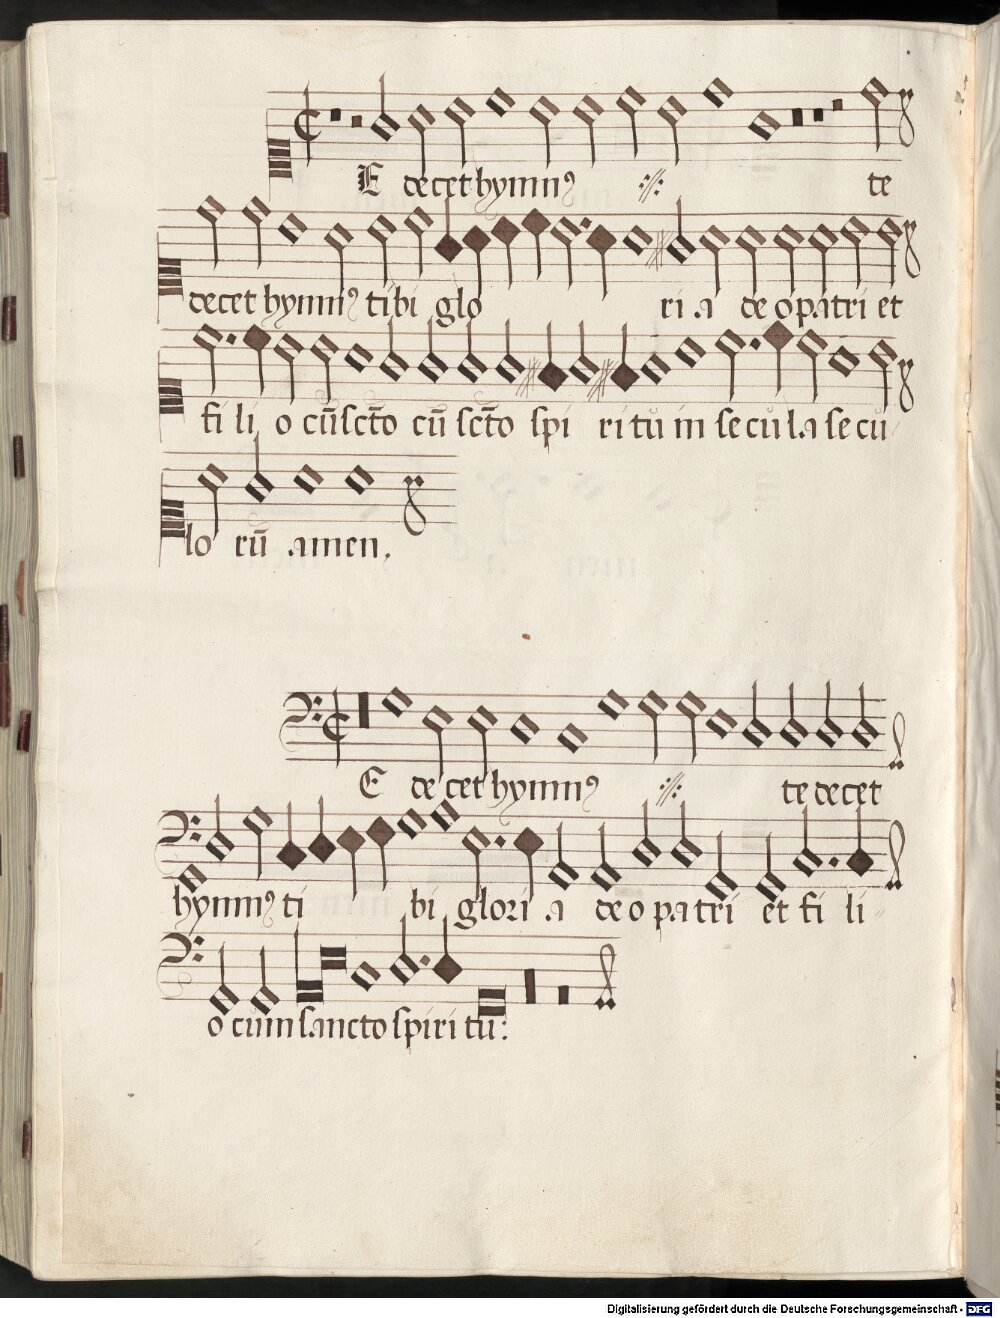 E decet hymnꝰ ://: te
decet hymnꝰ tibi glo ri a deo patri et
fi li o cu̅ sc̅to cu̅ sc̅to spi ri tu̇ in secu la se cu
lo ru̅ amen.
E decet hymnꝰ ://: te decet
hymnꝰ ti bi glori a deo patri et fi li
o cum sancto spiri tu:
Digitalisierung gefördert durch die Deutsche Forschungsgemeinschaft - DFG